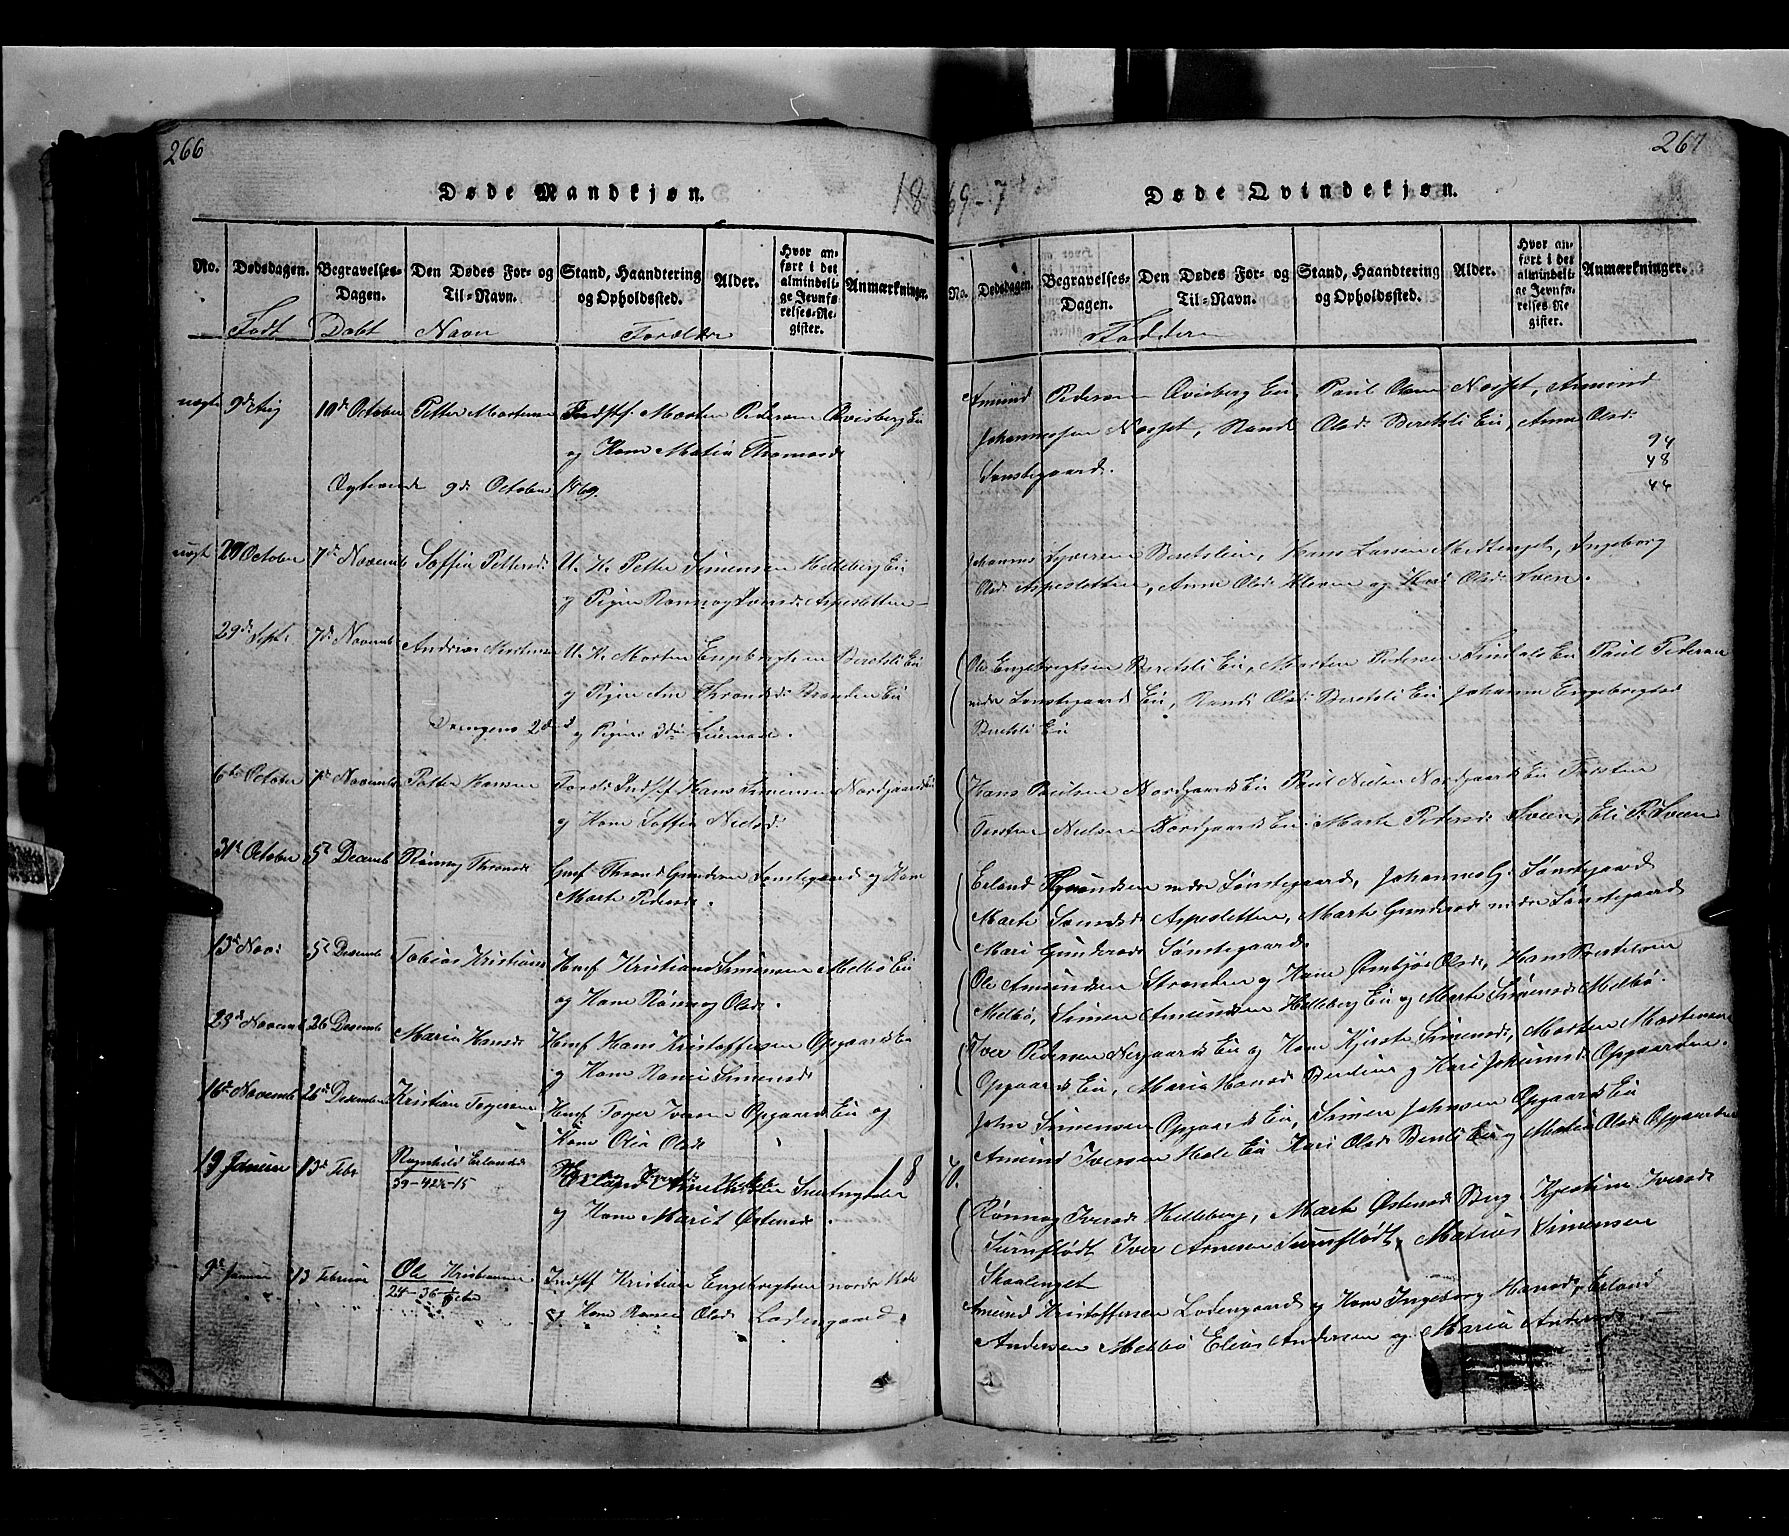 266
Døde Mandkjøn.
1869-7
No. Dødsdagen. Begravelses-Dagen. Den Dødes For- og Til-Navn. Stand, Haandtering og Opholdssted. Alder. Hvor anført i det almindelige Jevnførelses-Register. Anmærkninger.
Født Døbt Navn Forældre
uægte 9de Aug 10de October Petter Mortensen Indst Morten Pedersen Qvisberg Ei
og Kone Matia Thomasd
9de October 1869.
uægte October 7de Novemb Soffia Pettersd U. K. Petter Simensen Helleberg Ei
og Pigen Rønnog Iversd Aspesletten
29de Sept 7de Novemb Andreas Mortensen U. K. Morten Engebrigtsen Beretsli Ei
og Pigen Ane Throndsd Branden Ei
Drengens 2det og Pigens 3die Leiermaal.
6te October 7de Novemb Petter Hansen Indst Hans Simensen Nordgaards Ei
og Kone Soffia Nielsd
31te October 5te Decemb Rønnog Thronsd Gmf Thrond Gundersen Sønstegaard og Kone
Marte Pedersd.
13de Nov: 5te Desemb Tobias Kristians Hmf Kristian Simensen Melbø Ei
og Kone Rønnog Olsd.
23de Novemb 26 Desemb Maria Hansd Hmf Hans Kristoffersen Opgaards Ei
og Kone Simensd
16de Novemb 26de Desember Kristian Torgersen Hmf Torger Iversen Opgaards Ei og
Kone Olia Olsd
19 Januar 13de Febr Ragnhild Erlandsd Erland
39-42½-15 18 70.
og Kone Marit Østensd.
9de Januar 13 Februar Ole Kristiansen Indst Kristian Engebrigtsen nordre Hole
24-36-
og Kone Olsd Lodengaard.
267
Døde Qvindekjøn.
No. Dødsdagen. Begravelses-Dagen. Den Dødes For- og Til-Navn. Stand, Haandtering og Opholdssted. Alder. Hvor anført i det almindelige Jevnførelses-Register. Anmærkninger.
Faddere
Amund Pedersen Qvisberg Ei, Paul Olsen Nosset, Amund
Johannessen Nosset, Rand Olsd Beretsli Ei, Anne Olsd
Sønstegaard.
94
48
46
Johannes Iversen Beretslien, Hans Larsen Ingeborg
Olsd Aspesletten, Anne Olsd Kleven og Kari Olsd Sveen.
Ole Engebrigtsen Beretsli Ei, Morten Pedersen Ei Paul Pedersen
nedre Sønstegaards Ei, Rand Olsd Beretsli Ei Johanna Engebrigtsd
Beretsli Ei
Hans Paulsen Nordgaards Ei Paul Nielsen Nordgaards Ei Torsten
Nielsen Nordgaards Ei Marte Pedersd Sveen, Eli P. Sveen
Erland Amundsen nedre Sønstegaard, Johannes G. Sønstegaard
Marte Aspesletten, Marte Gundersd nedre Sønstegaard
Mari Gundersd Sønstegaard
Ole Amundsen Stranden og Kone Ømbjør Olsd, Hans
Melbø, Simen Amundsen Helleberg Ei og Marte Simensd Melbø.
Iver Pedersen Nergaards Ei og Kone Kjerste Simensd, Morten Mortensen
Opgaards Ei, Maria Hansd og Kari Johannsd Opgaarden.
John Simensen Opgaards Ei, Simen Johnsen Opgaards Ei
Amund Iversen Hole Ei Kari Olsd Ei og Matia Olsd Opgaarden
Rønnog Iversd Helleberg, Marte Østensd Berg Kjerstine Iversd
Turuflødt, Iver Arnesen Turuflødt, Matias Simensen
Skaalenget
Amund Kristoffersen Lodengaard og Kone Ingeborg Hansd, Erland
Andersen Melbø Elias Andersen og Maria Andersd